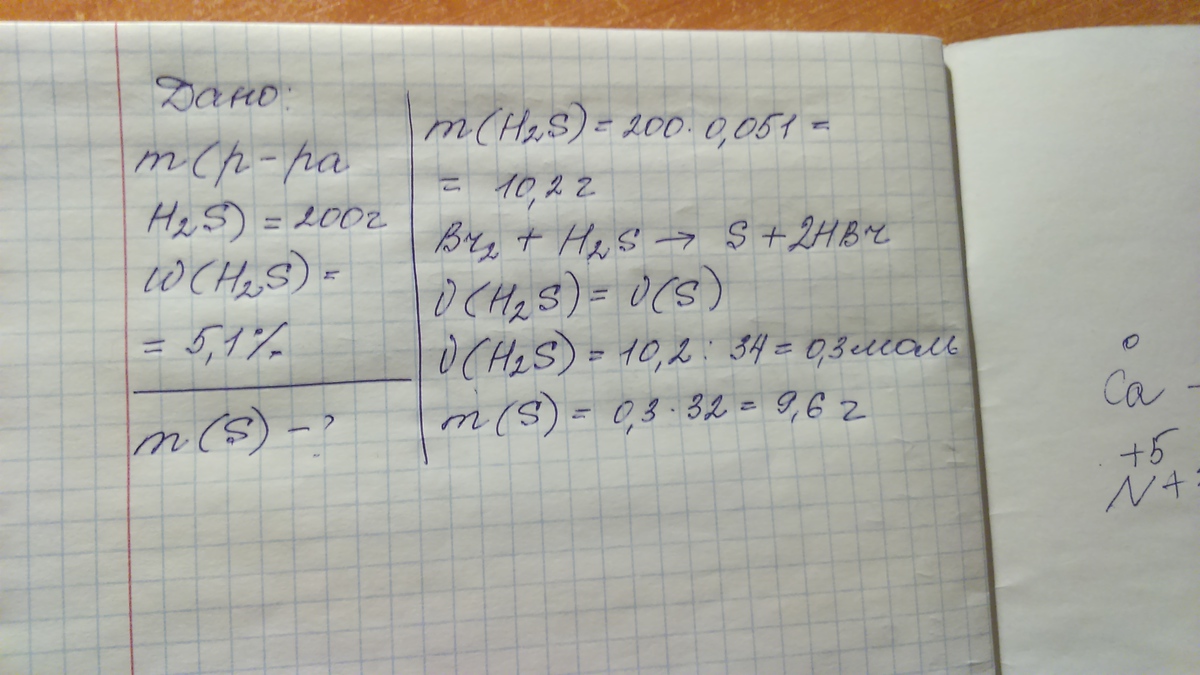 Дано:
m(р-ра
H₂S) = 200г
W(H₂S) =
= 5,1%
m(S) - ?
m(H₂S) = 200 · 0,051 =
= 10,2 г
Br₂ + H₂S → S + 2HBr
ν(H₂S) = ν(S)
ν(H₂S) = 10,2 : 34 = 0,3 моль
m(S) = 0,3 · 32 = 9,6 г
0
Ca -
+5
N +